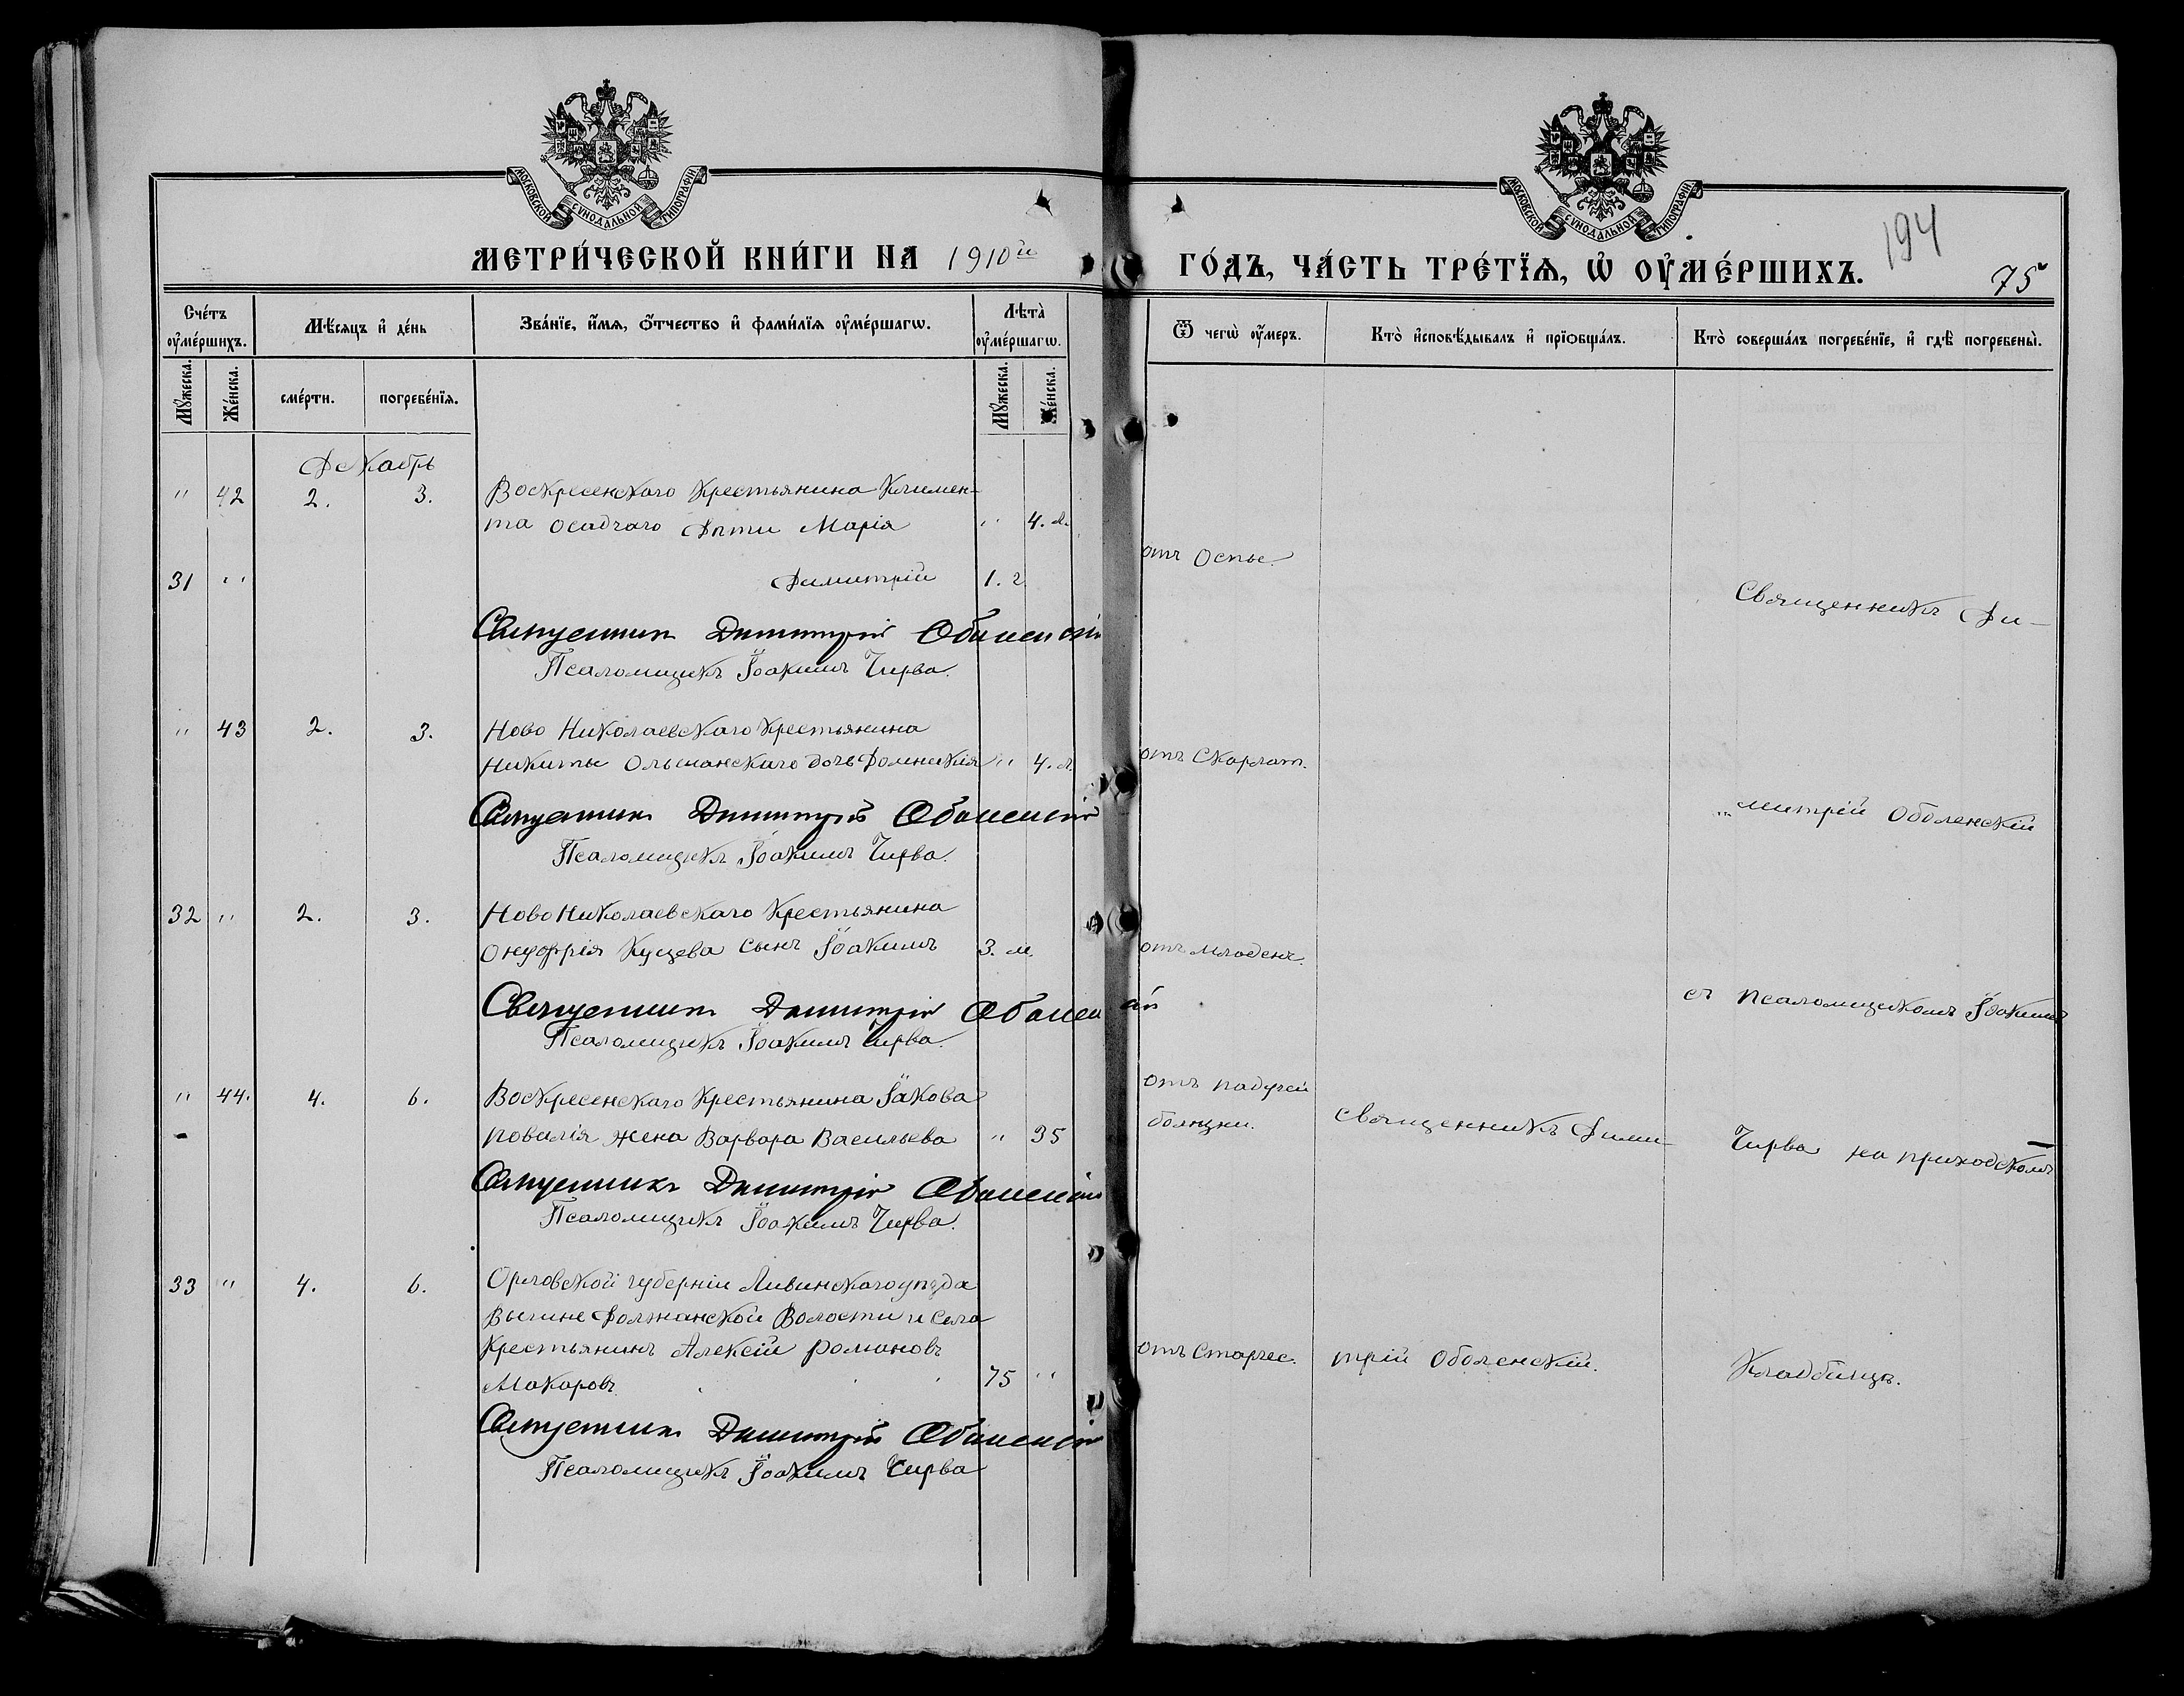 МОСКОВСКОЙ СѴНОДАЛЬНОЙ ТИПОГРАФІИ
МОСКОВСКОЙ СѴНОДАЛЬНОЙ ТИПОГРАФІИ
МЕТРИ́ЧЕСКОЙ КНИ́ГИ НА 1910й
ГО́ДЪ, ЧА́СТЬ ТРЕ́ТЇѦ, Ѡ҆ ОУ҆МЕ́РШИХЪ.
194
75
Сче́тъ оу҆ме́ршихъ.
Мꙋ́жеска.
Же́нска.
Мѣ́сяцъ и҆ де́нь
сме́рти.
погребе́нїѧ.
Зва́нїе, и҆́мѧ, ѻ҆́тчество и҆ фами́лїѧ оу҆ме́ршагѡ.
Лѣ̀та оу҆ме́ршагѡ.
Мꙋ́жеска.
Же́нска.
Ѿ чегѡ̀ оу҆́меръ.
Кто̀ и҆сповѣ́дывалъ и҆ прїѻбща́лъ.
Кто̀ соверша́лъ погребе́нїе, и҆ гдѣ̀ погребены̀.
Декабрь
" 42 2. 3. Воскресенскаго Крестьянина Климен-
та Осадчаго Дѣти Марія " 4. л.
отъ Оспы.
31 " Димитрій 1. г.
Священникъ Димитрій Оболенскій
Псаломщикъ Іоакимъ Чирва.
Священникъ Ди-
" 43 2. 3. Ново Николаевскаго Крестьянина
Никиты Ольшанскаго дочь Домникія " 4. л.
отъ Скарлат.
Священникъ Димитрій Оболенскій
Псаломщикъ Іоакимъ Чирва.
митрій Оболенскій
32 " 2. 3. Ново Николаевскаго Крестьянина
Онуфрія Куцева сынъ Іоакимъ 3. м.
отъ младенч.
Священникъ Димитрій Оболенскій
Псаломщикъ Іоакимъ Чирва.
съ псаломщикомъ Іоакимъ
" 44. 4. 6. Воскресенскаго Крестьянина Іакова
Повалія жена Варвара Васильева " 35
отъ падучей
болѣзни.
Священникъ Дими-
Чирва на приходскомъ
Священникъ Димитрій Оболенскій
Псаломщикъ Іоакимъ Чирва.
33 " 4. 6. Орловской губерніи Ливинскаго уѣзда
Должанской Волости и села
Крестьянинъ Алексій Романовъ
Макаровъ 75 "
отъ Старчес.
трій Оболенскій.
Кладбищѣ.
Священникъ Димитрій Оболенскій
Псаломщикъ Іоакимъ Чирва